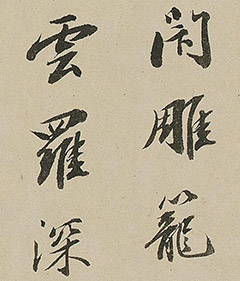 閇雕籠
雲羅深